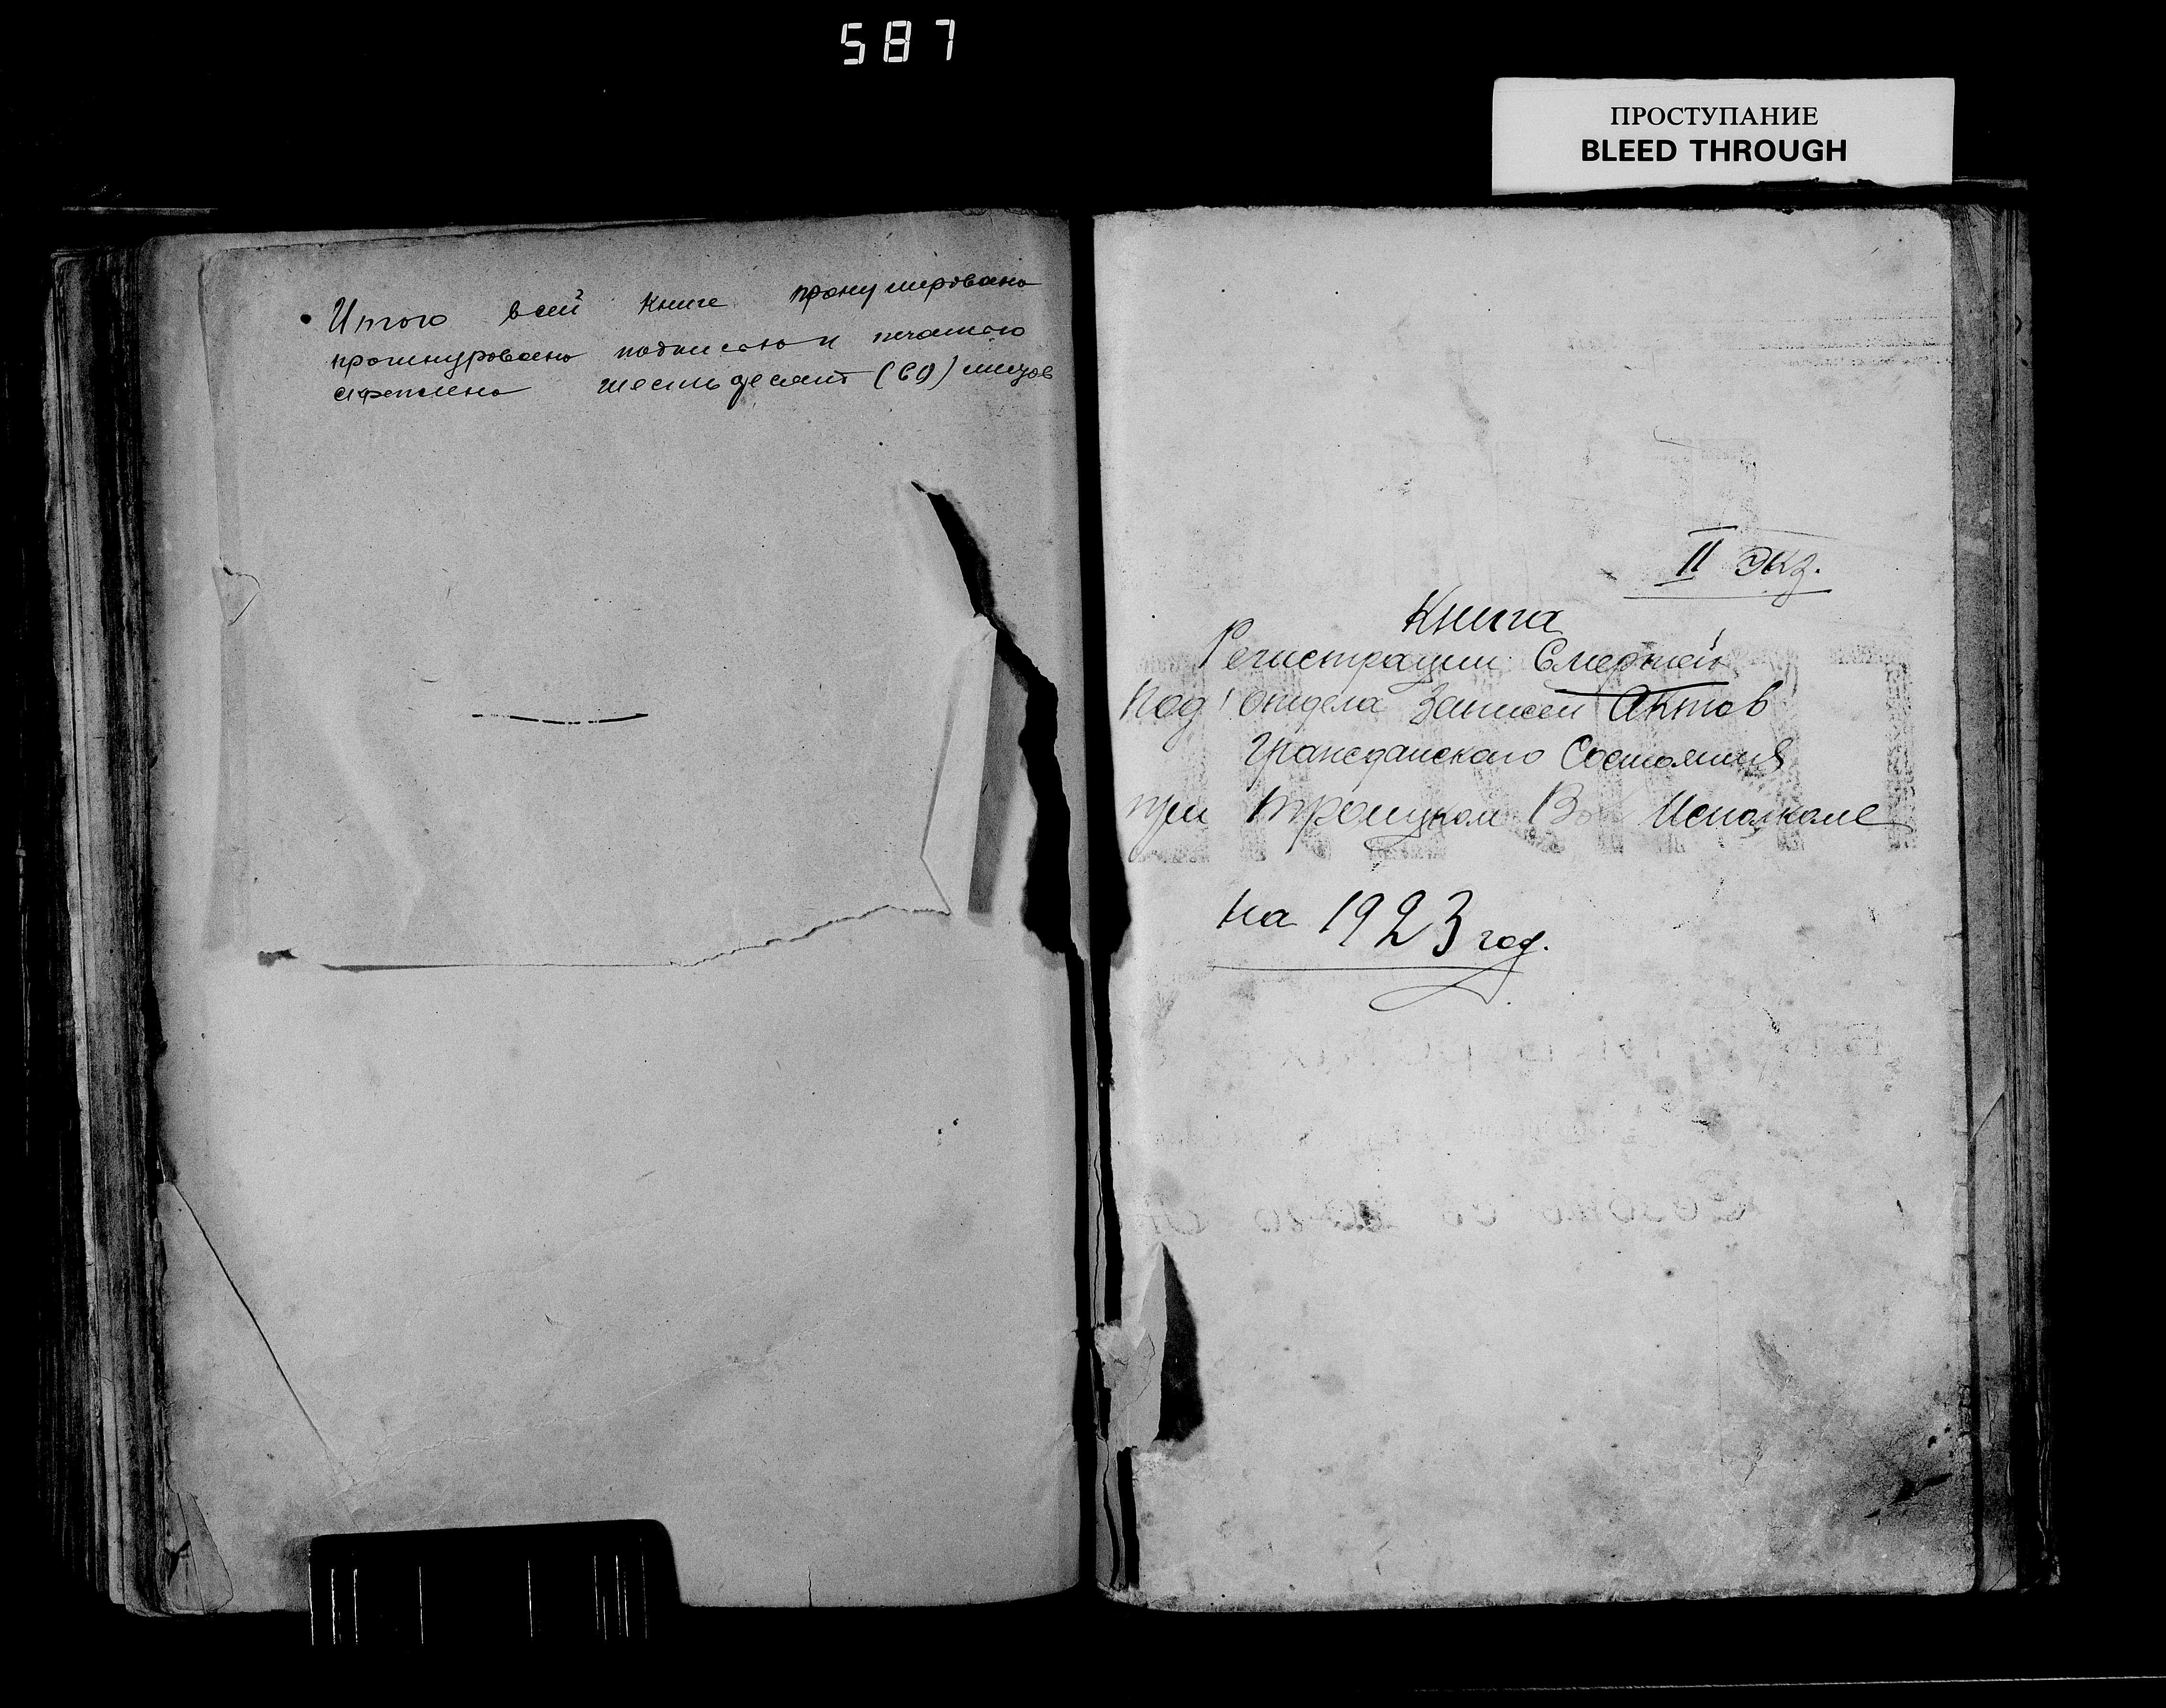 587
ПРОСТУПАНИЕ
BLEED THROUGH
Итого всей книге пронумировано
прошнуровано подписью и печатью
скреплено шестьдесят (60) лицов
II экз.
Книга
Регистрации Смертей
Под'отдела Записей Актов
Гражданского Состояния
при Троицком Во Исполкоме
на 1923 год.